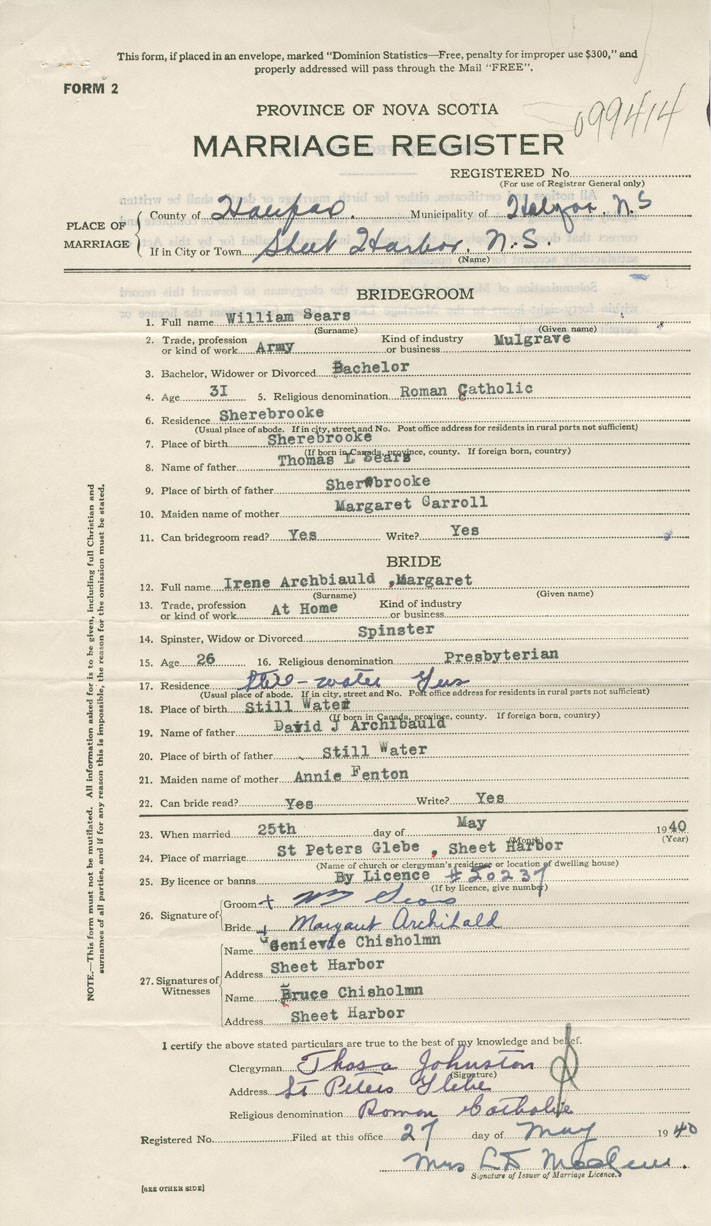 This form, if placed in an envelope, marked "Dominion Statistics—Free, penalty for improper use $300," and
properly addressed will pass through the Mail "FREE".
FORM 2
PROVINCE OF NOVA SCOTIA
099414
MARRIAGE REGISTER
REGISTERED No.
(For use of Registrar General only)
PLACE OF MARRIAGE
County of Halifax. Municipality of Halifax, N.S
If in City or Town Sheet Harbor, N.S.
(Name)
BRIDEGROOM
1. Full name William Sears
(Surname) (Given name)
2. Trade, profession or kind of work Army Kind of industry or business Mulgrave
3. Bachelor, Widower or Divorced Bachelor
4. Age 31 5. Religious denomination Roman Catholic
6. Residence Sherebrooke
(Usual place of abode. If in city, street and No. Post office address for residents in rural parts not sufficient)
7. Place of birth Sherebrooke
(If born in Canada, province, county. If foreign born, country)
8. Name of father Thomas L Sears
9. Place of birth of father Sherebrooke
10. Maiden name of mother Margaret Carroll
11. Can bridegroom read? Yes Write? Yes
BRIDE
12. Full name Irene Archbiauld ,Margaret
(Surname) (Given name)
13. Trade, profession or kind of work At Home Kind of industry or business
14. Spinster, Widow or Divorced Spinster
15. Age 26 16. Religious denomination Presbyterian
17. Residence Still-water Guys
(Usual place of abode. If in city, street and No. Post office address for residents in rural parts not sufficient)
18. Place of birth Still Water
(If born in Canada, province, county. If foreign born, country)
19. Name of father David J Archibauld
20. Place of birth of father Still Water
21. Maiden name of mother Annie Fenton
22. Can bride read? Yes Write? Yes
23. When married 25th day of May 1940
(Month) (Year)
24. Place of marriage St Peters Glebe , Sheet Harbor
(Name of church or clergyman's residence or location of dwelling house)
25. By licence or banns By Licence #50237
(If by licence, give number)
26. Signature of
Groom + Wm Sears
Bride Margaret Archibald
27. Signatures of Witnesses
Name Genievde Chisholmn
Address Sheet Harbor
Name Bruce Chisholmn
Address Sheet Harbor
I certify the above stated particulars are true to the best of my knowledge and belief.
Clergyman Thos a Johnston
(Signature)
Address St Peters Glebe
Religious denomination Roman Catholic
Registered No. Filed at this office 27 day of May 1940
Mrs
Signature of Issuer of Marriage Licence.
[SEE OTHER SIDE]
NOTE.—This form must not be mutilated. All information asked for is to be given, including full Christian and
surnames of all parties, and if for any reason this is impossible, the reason for the omission must be stated.